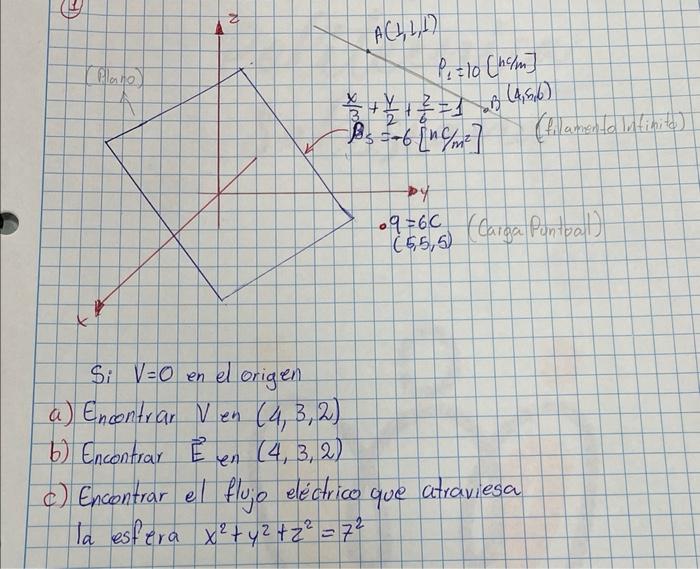 1
z
A(1,1,1)
(Plano)
ρ₁=10 [nC/m]
x/3 + y/2 + z/6 = 1
B (4,5,6)
ρs = -6 [nC/m²]
(filamento Infinito)
y
q=6C (Carga Puntual)
(5,5,5)
x
Si V=0 en el origen
a) Encontrar V en (4,3,2)
b) Encontrar E⃗ en (4,3,2)
c) Encontrar el flujo eléctrico que atraviesa
la esfera x²+y²+z²=7²